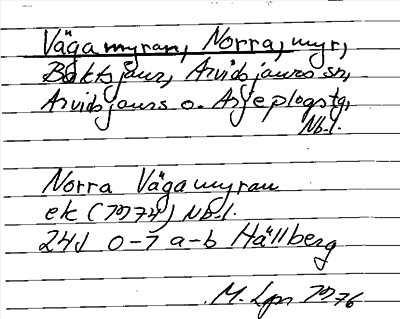 Vägamyran, Norra, myr,
Baktsjaur, Arvidsjaurs sn,
Arvidsjaurs o. Arjeplogs tg,
Nb.l.
Norra Vägamyran
ek (1974) Nb.l.
24J 0-1 a-b Hällberg
M. Lgn 1976